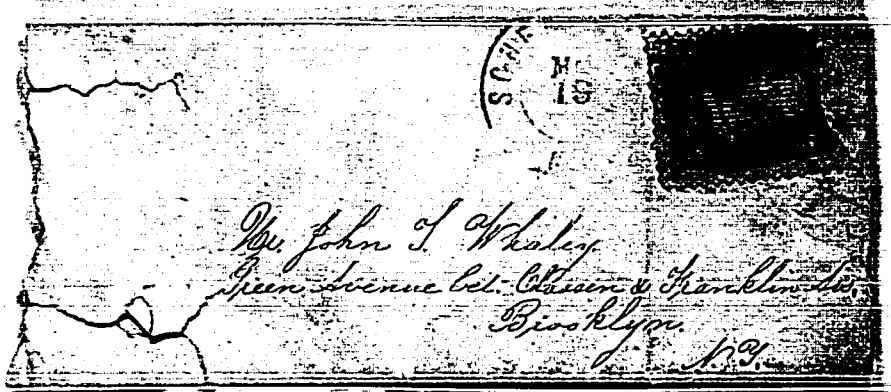 18
Mr. John T. Whaley
Green Avenue bet. Classen & Franklin Av.
Brooklyn.
N.Y.